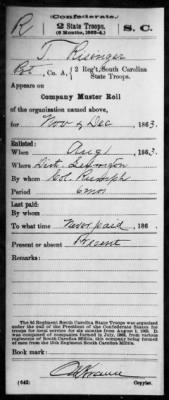 Confederate.
R 2 State Troops S. C.
(6 Months, 1863-4.)
T. Risinger
Pvt, Co. A, 2 Reg't, South Carolina
State Troops.
Appears on
Company Muster Roll
of the organization named above,
for Nov & Dec, 1863.
Enlisted:
When Aug 1, 1863.
Where Dist Lexington
By whom Col.
Period 6 mos
Last paid:
By whom
To what time Never paid, 186 .
Present or absent Present
Remarks:
The 2d Regiment South Carolina State Troops was organized
under the call of the President of the Confederate States for
troops for local service for six months from August 1, 1863. It
was composed of companies formed in July, 1863, from various
regiments of South Carolina Militia, the companies being formed of
men from the 15th Regiment South Carolina Militia.
Book mark:
(642) Copyist.